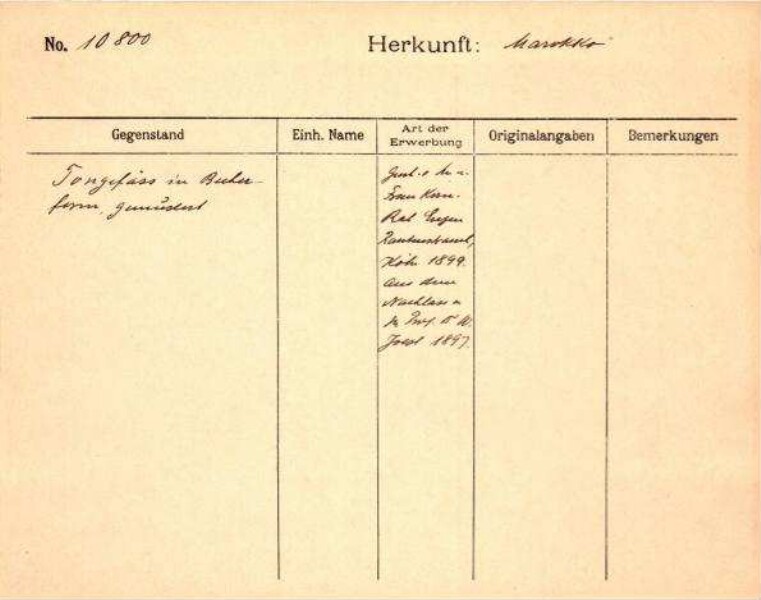 No. 10800
Herkunft: Marokko
Gegenstand
Einh. Name
Art der
Erwerbung
Originalangaben
Bemerkungen
Tongefäss in Becher-
form, gemustert
Frau Kom.
Rat Eugen
Rautenstrauch,
Köln 1899.
Aus dem
Nachlass
Prof. Dr. W.
Joest 1897.